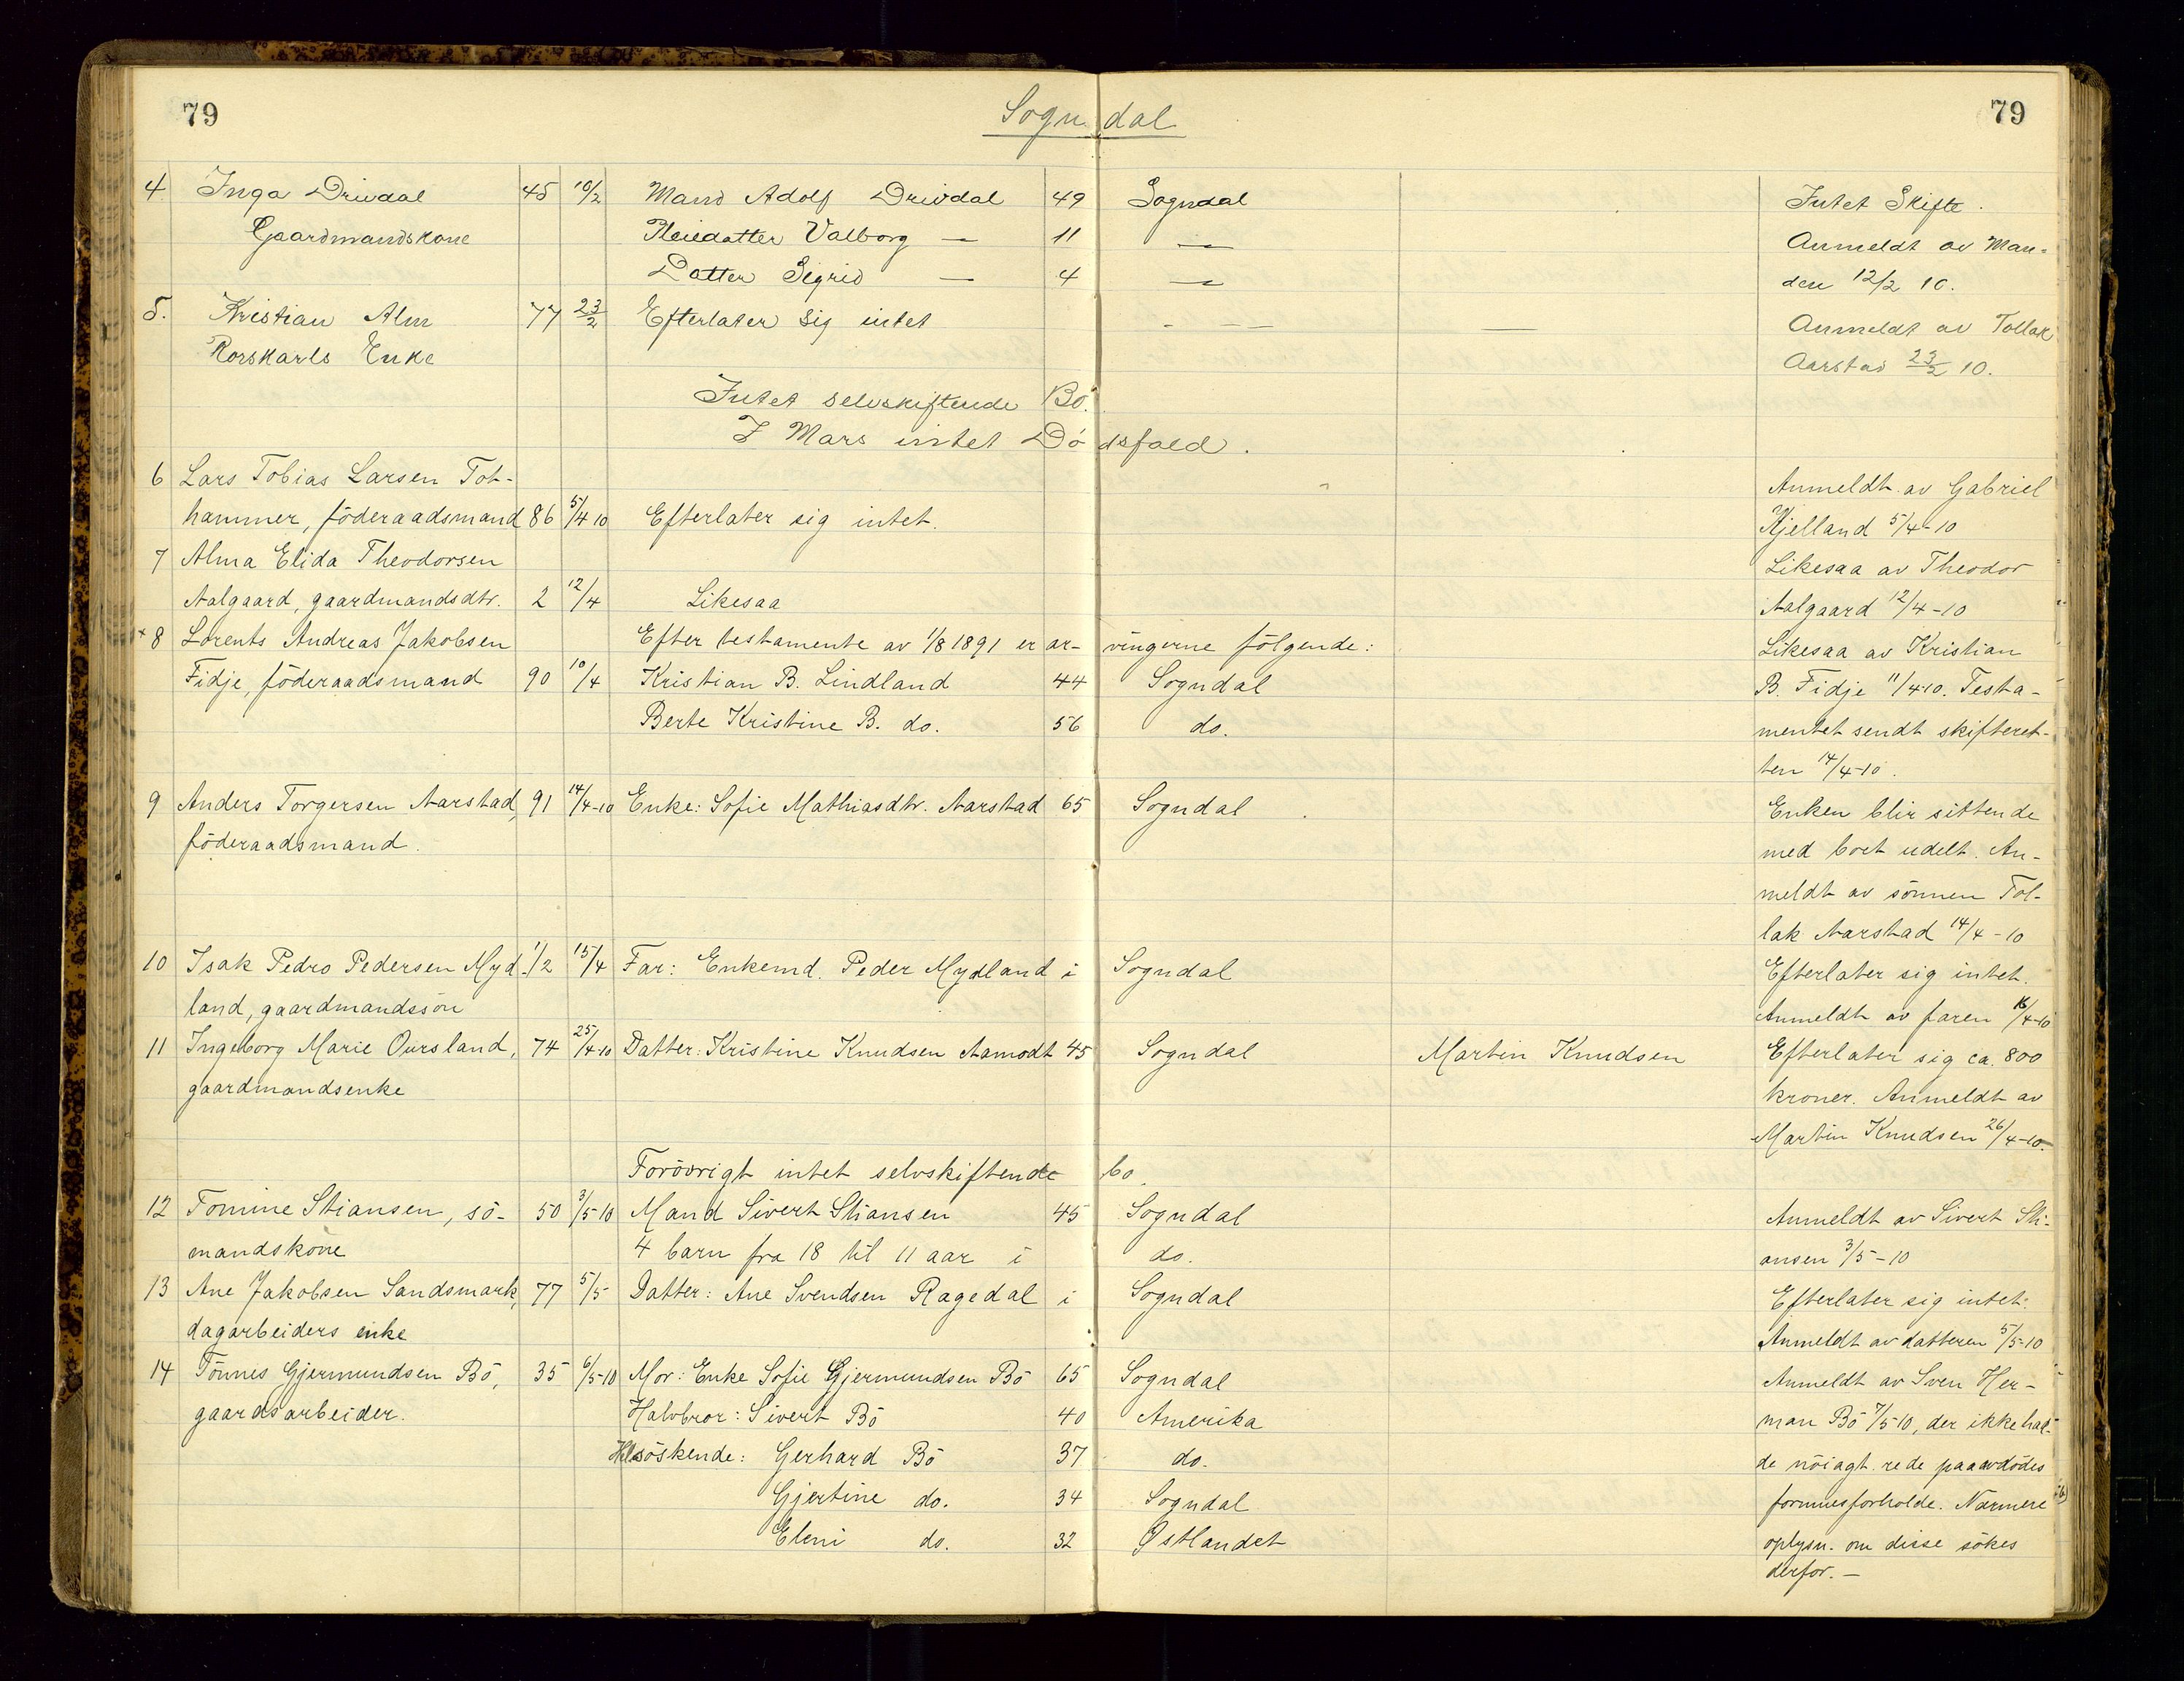 79 Sogndal 79
4 Inga Drivdal 45 10/2 Mand Adolf Drivdal 49 Sogndal Intet Skifte.
Gaardmandskone Pleiedatter Valborg — 11 — Anmeldt av Man-
Datter Sigrid — 4 — den 12/2 10.
5. Kristian Alm 77 23/2 Efterlater sig intet - — — — Anmeldt av Tollak
Rorskarls Enke Aarstad 23/2 10.
Intet selvskiftende Bö.
I Mars intet Dödsfald.
6 Lars Tobias Larsen Tot- Anmeldt av Gabriel
hammer, föderaadsmand 86 5/4 10 Efterlater sig intet. Kjelland 5/4-10
7 Alma Elida Theodorsen Likesaa av Theodor
Aalgaard, gaardmandsdtr. 2 12/4 Likesaa Aalgaard 12/4-10
+ 8 Lorents Andreas Jakobsen Efter testamente av 1/8 1891 er ar- vingerne fölgende: Likesaa av Kristian
Fidje, föderaadsmand 90 10/4 Kristian B. Lindland 44 Sogndal B. Fidje 11/4 10. Testa-
Berte Kristine B. do. 56 do. mentet sendt skifteret-
ten 14/4-10.
9 Anders Torgersen Aarstad, 91 14/4-10 Enke: Sofie Mathiasdtr. Aarstad 65 Sogndal Enken blir sittende
föderaadsmand. med boet udelt. An-
meldt av sönnen Tol-
lak Aarstad 14/4-10
10 Isak Pedro Pedersen Myd- 1/2 15/4 Far: Enkemd. Peder Mydland i Sogndal Efterlater sig intet.
land, gaardmandssön Anmeldt av faren 16/4-10
11 Ingeborg Marie Oursland, 74 25/4-10 Datter: Kristine Knudsen Aamodt 45 Sogndal Martin Knudsen Efterlater sig ca. 800
gaardmandsenke kroner. Anmeldt av
Martin Knudsen 26/4-10.
Forövrigt intet selvskiftende bo.
12 Tomine Stiansen, sö- 50 3/5-10 Mand Sivert Stiansen 45 Sogndal Anmeldt av Sivert Sti-
mandskone 4 barn fra 18 til 11 aar i do. ansen 3/5-10
13 Ane Jakobsen Sandsmark, 77 5/5 Datter: Ane Svendsen Ragedal i Sogndal Efterlater sig intet.
dagarbeiders enke Anmeldt av datteren 5/5-10
14 Tönnes Gjermundsen Bö, 35 6/5-10 Mor: Enke Sofie Gjermundsen Bö 65 Sogndal Anmeldt av Sven Her-
gaardsarbeider. Halvbror: Sivert Bö 40 Amerika man Bö 7/5 10, der ikke had-
Helsöskende: Gerhard Bö 37 do. de nöiagt. rede paa avdödes
Gjertine do. 34 Sogndal formuesforholde. Nærmere
Eleni do. 32 Østlandet oplysn. om disse sökes
derfor. —